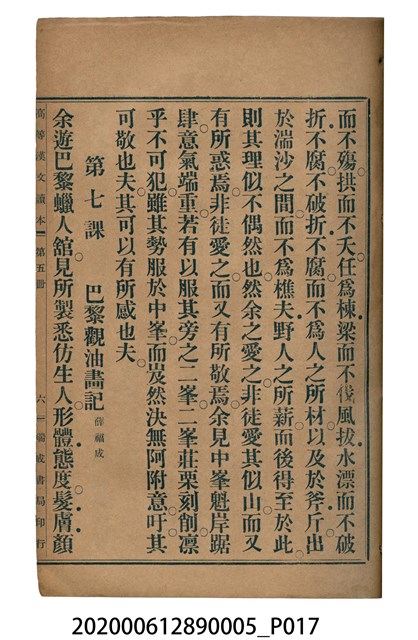 而不殤拱而不夭任爲棟梁而不伐風拔水漂而不破
折不腐不破折不腐而不爲人之所材以及於斧斤出
於湍沙之間而不爲樵夫野人之所薪而後得至於此
則其理似不偶然也然余之愛之非徒愛其似山而又
有所感焉非徒愛之而又有所敬焉余見中峯魁岸踞
肆意氣端重若有以服其旁之二峯二峯莊栗刻削凜
乎不可犯雖其勢服於中峯而岌然決無阿附意吁其
可敬也夫其可以有所感也夫
第七課 巴黎觀油畫記 薛福成
余遊巴黎蠟人館見所製悉仿生人形體態度髮膚顏
高等漢文讀本 第五冊 六 瑞成書局印行
202000612890005_P017